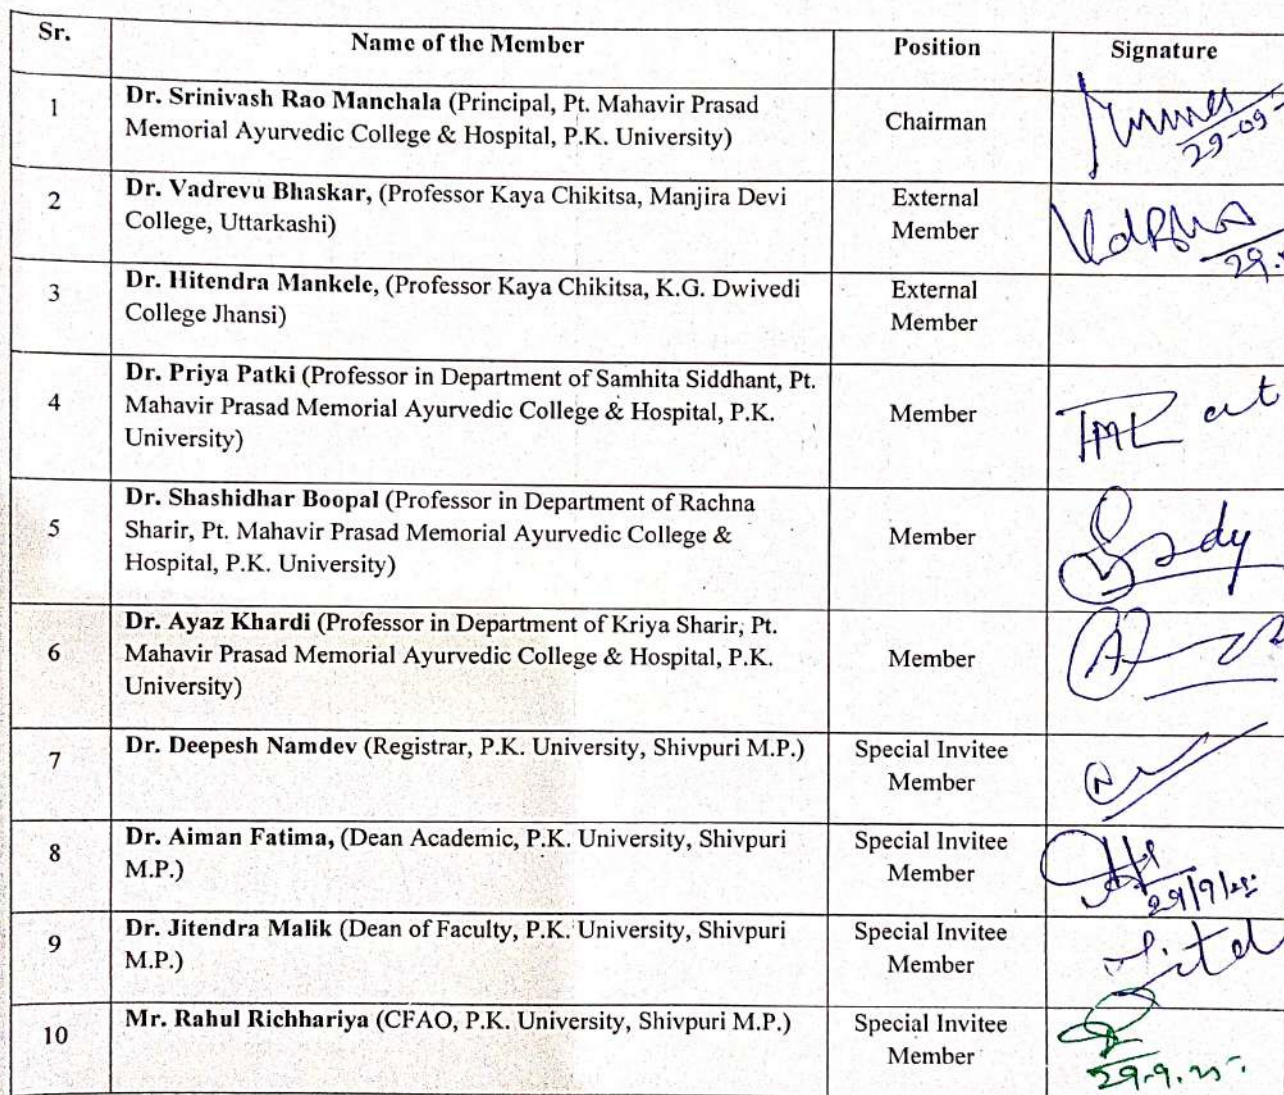 Sr. Name of the Member Position Signature
1 Dr. Srinivash Rao Manchala (Principal, Pt. Mahavir Prasad
Memorial Ayurvedic College & Hospital, P.K. University) Chairman
29-09-
2 Dr. Vadrevu Bhaskar, (Professor Kaya Chikitsa, Manjira Devi
College, Uttarkashi) External
Member
29.
3 Dr. Hitendra Mankele, (Professor Kaya Chikitsa, K.G. Dwivedi
College Jhansi) External
Member
4 Dr. Priya Patki (Professor in Department of Samhita Siddhant, Pt.
Mahavir Prasad Memorial Ayurvedic College & Hospital, P.K.
University) Member
5 Dr. Shashidhar Boopal (Professor in Department of Rachna
Sharir, Pt. Mahavir Prasad Memorial Ayurvedic College &
Hospital, P.K. University) Member
6 Dr. Ayaz Khardi (Professor in Department of Kriya Sharir, Pt.
Mahavir Prasad Memorial Ayurvedic College & Hospital, P.K.
University) Member
7 Dr. Deepesh Namdev (Registrar, P.K. University, Shivpuri M.P.) Special Invitee
Member
8 Dr. Aiman Fatima, (Dean Academic, P.K. University, Shivpuri
M.P.) Special Invitee
Member
29/9/25
9 Dr. Jitendra Malik (Dean of Faculty, P.K. University, Shivpuri
M.P.) Special Invitee
Member
10 Mr. Rahul Richhariya (CFAO, P.K. University, Shivpuri M.P.) Special Invitee
Member
29.9.25.